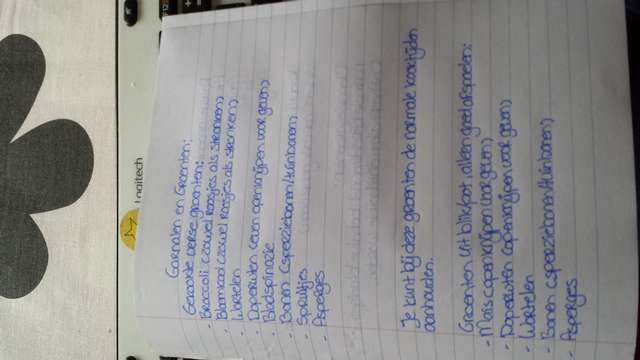 Garnalen en Groenten:
Gekookte verse groenten:
- Broccoli (zowel roosjes als stronken)
- Bloemkool (zowel roosjes als stronken)
- Wortelen
- Doperwten (even openknijpen voor geven)
- Bladspinazie
- Bonen (sperziebonen/tuinbonen)
- Spruitjes
- Asperges
Je kunt bij deze groenten de normale kooktijden
aanhouden.
Groenten uit blik/pot, alleen goed afspoelen:
- Mais (openknijpen voor geven)
- Doperwten (openknijpen voor geven)
- Wortelen
- Bonen (sperziebonen/tuinbonen)
- Asperges
Logitech